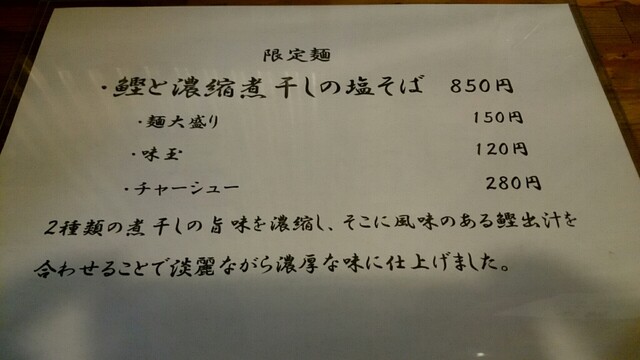 限定麺
・鰹と濃縮煮干しの塩そば 850円
・麺大盛り 150円
・味玉 120円
・チャーシュー 280円
2種類の煮干しの旨味を濃縮し、そこに風味のある鰹出汁を
合わせることで淡麗ながら濃厚な味に仕上げました。